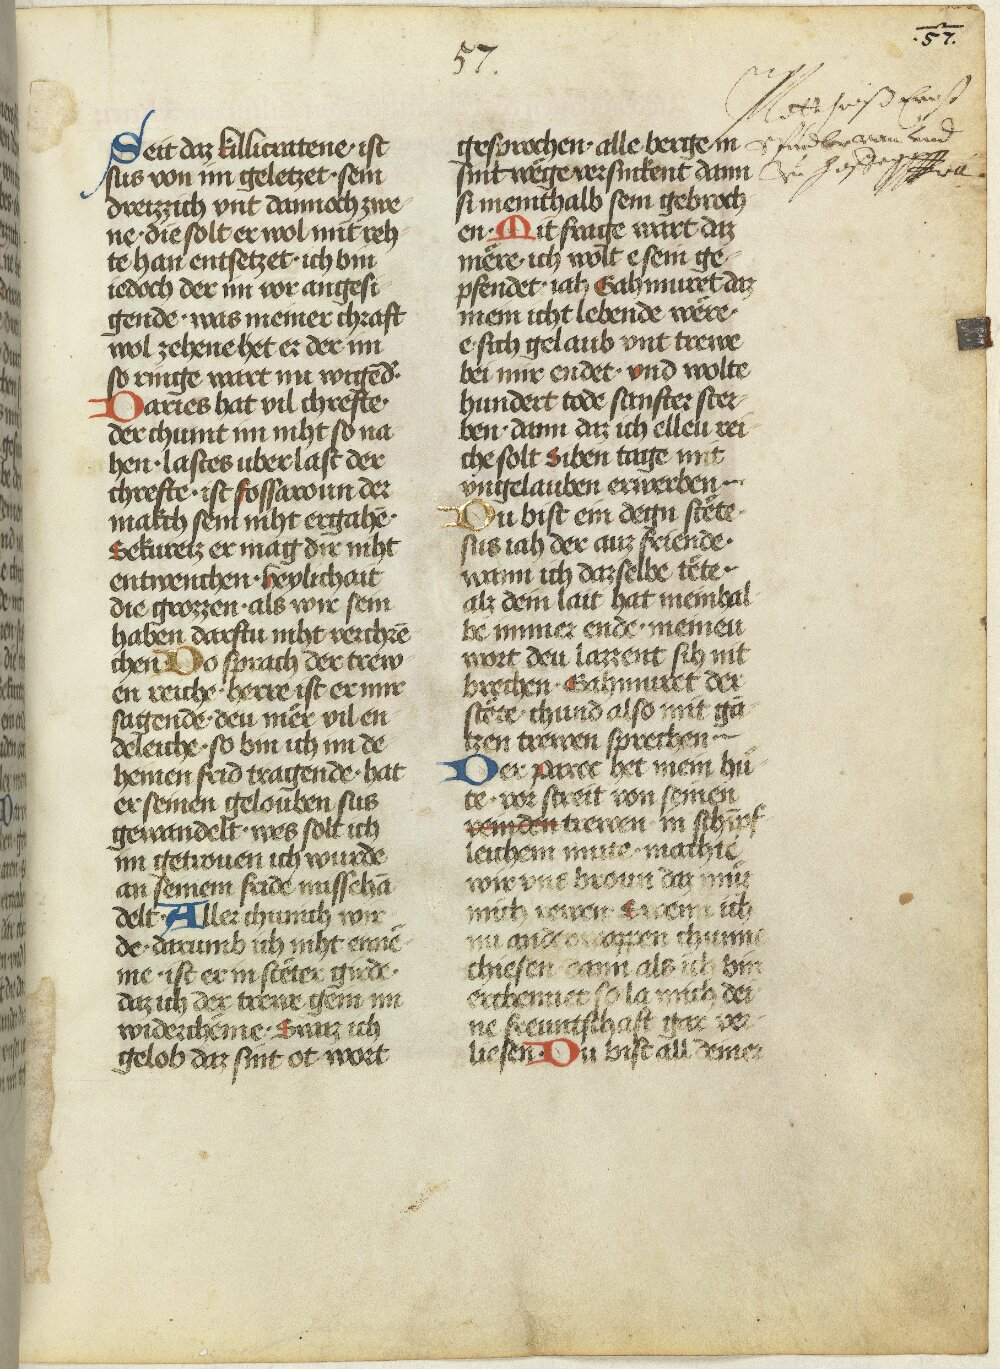 57.
.57.
Seit daz killicratene · ist
sus von im geletzet · sein
dreizzich vnt dannoch zwe-
ne · die solt er wol mit reh-
te han entsetzet · ich bin
iedoch der im vor angesi-
gende · was meiner chraft
wol zehene het er der im
so ringe wart nu wigēd ·
Daries hat vil chrefte ·
der chumt im niht so na-
hen · lastes uber last der
chrefte · ist fossaroun der
makch sein niht ergahē ·
Sekureiz er mag dir niht
entwenchen · heylichait
die grozzen · als wir sein
haben darftu niht verchrē-
chen Do sprach der trew-
en reiche · herre ist er mir
sagende · deu mër vil en-
deleiche · so bin ich im de-
heinen frid tragende · hat
er seinen geloūben sus
gewandelt · wes solt ich
im getrouen ich wurde
an seinem fride missehā-
delt · Aller chunich wir-
de · darumb ich niht ennē-
me · ist er in stëter girde ·
daz ich der trewe gein im
widerchëme · Swaz ich
gelob daz sint ot wort
gesprochen · alle berge in
sint wëge versinkent dann
si meinthalb sein gebroch-
en · Mit frage wart daz
mëre · ich wolt e sein ge-
pfendet · iah Gahmuret daz
mein icht lebende wëre ·
e sich gelaub vnt trewe
bei mir endet · vnd wolte
hundert tode sanfter ster-
ben · dann daz ich elleu rei-
che solt Siben tage mit
vngelauben erwerben
Du bist ein degn stëte ·
sus iah der auz friende ·
wann ich dazselbe tëte ·
alz dein lait hat meinhal-
be immer ende · meineu
wort deu lazzent sih nit
brechen · Gahmuret der
stëte · chund also mit gā-
tzen trewen sprechen
Der paruc het mein hü-
te · vor streit von seinen
veinden trewen · in schīpf-
leichem mute · machiē
wir vns broun daz mūz
mich rewen · Swenn ich
nu ander wappen chunne
chiesen dann als ich bin
erchennet so la mich dei-
ne freuntschaft gar ver-
liesen · Du bist all deiner